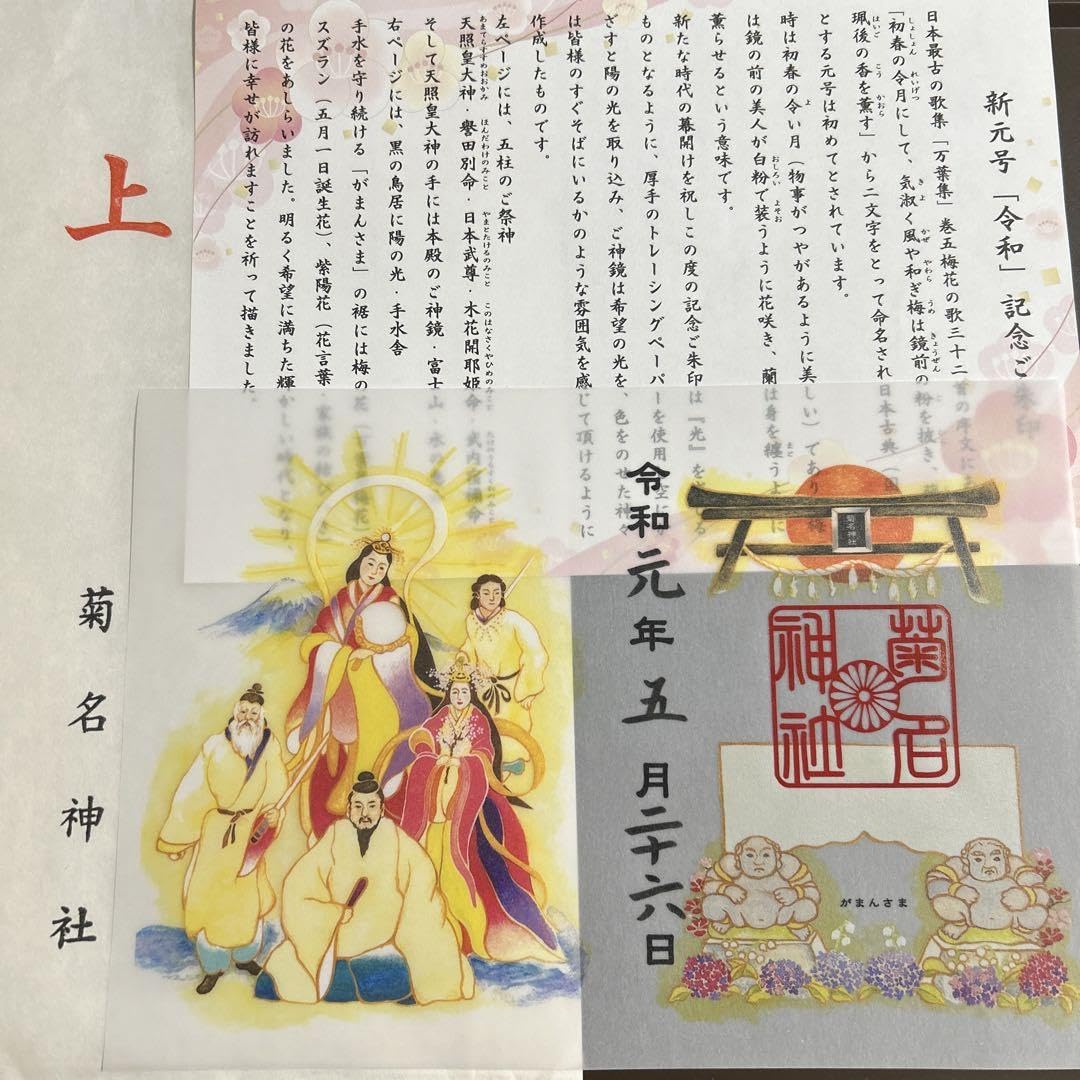 新元号「令和」記念ご朱印
日本最古の歌集「万葉集」巻五梅花の歌三十二首の序文に
「初春の令月にして、気淑く風や和ぎ梅は鏡前の粉を披き、
珮後の香を薫す」から二文字をとって命名され日本古典
とする元号は初めてとされています。
時は初春の令い月（物事がつやがあるように美しい）であり
は鏡の前の美人が白粉で装うように花咲き、蘭は身を纏うように
薫らせるという意味です。
新たな時代の幕開けを祝しこの度の記念ご朱印は『光』を
ものとなるように、厚手のトレーシングペーパーを使用
ざすと陽の光を取り込み、ご神鏡は希望の光を、色をのせた神々
は皆様のすぐそばにいるかのような雰囲気を感じて頂けるように
作成したものです。
左ページには、五柱のご祭神
天照皇大神・譽田別命・日本武尊・木花開耶姫命・武内宿禰命
そして天照皇大神の手には本殿のご神鏡・富士山
右ページには、黒の鳥居に陽の光・手水舎
手水を守り続ける「がまんさま」の裾には梅の花
スズラン（五月一日誕生花）、紫陽花（花言葉
の花をあしらいました。明るく希望に満ちた輝かしい時代となり、
皆様に幸せが訪れますことを祈って描きました。
上
菊名神社
令和元年五月二十六日
菊名神社
菊名
神社
がまんさま